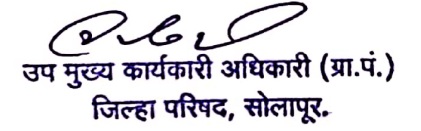 उप मुख्य कार्यकारी अधिकारी (ग्रा.पं.)
जिल्हा परिषद, सोलापूर.